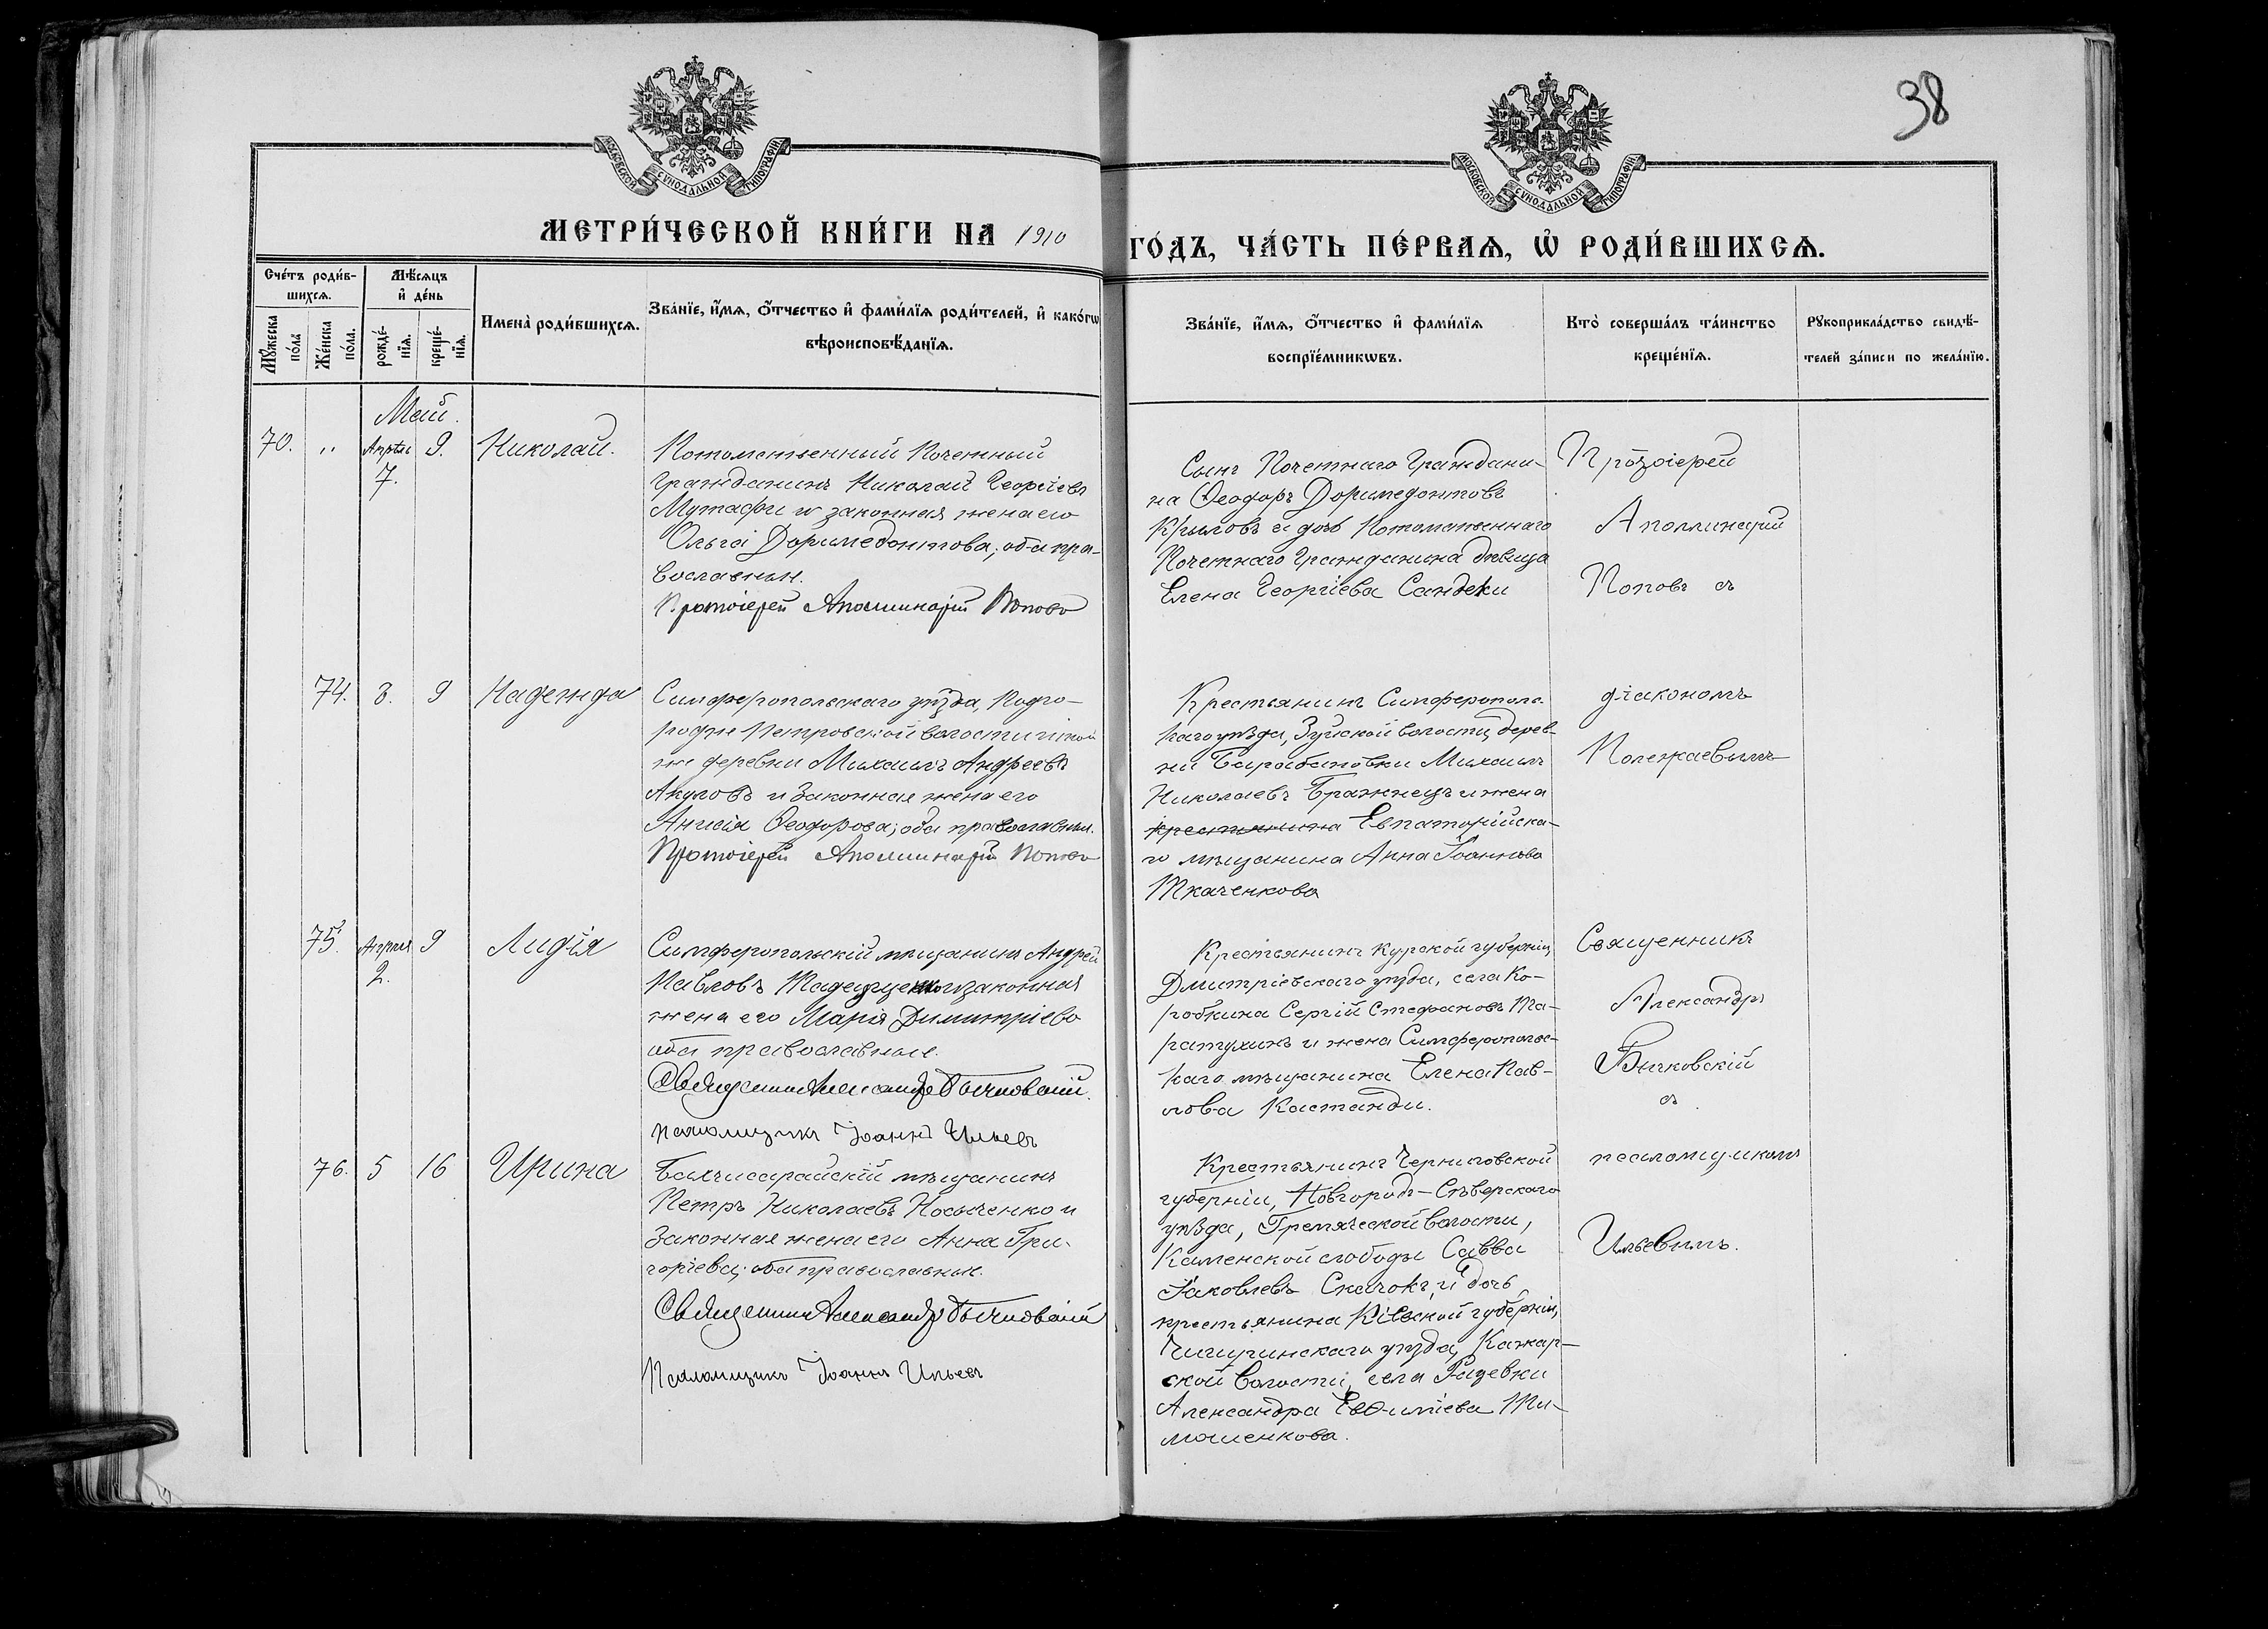 38
МОСКОВСКОЙ СУНОДАЛЬНОЙ ТИПОГРАФІИ
МОСКОВСКОЙ СУНОДАЛЬНОЙ ТИПОГРАФІИ
МЕТРИ́ЧЕСКОЙ КНИ́ГИ НА 1910 ГО́ДЪ, ЧА́СТЬ ПЕ́РВАѦ, Ѡ РОДИ́ВШИХСѦ.
Сче́тъ роди́в-
шихсѧ.
Мꙋ́жеска
по́ла
Же́нска
по́ла.
Мѣ́сѧцъ
и де́нь
рожде́-
нїѧ.
креще́-
нїѧ.
Имена̀ роди́вшихсѧ.
Зва́нїе, и́мѧ, ѻ́тчество и фами́лїѧ роди́телей, и како́гѡ
вѣроисповѣ́данїѧ.
Зва́нїе, и́мѧ, ѻ́тчество и фами́лїѧ
воспрїе́мникѡвъ.
Кто̀ соверша́лъ та́инство
креще́нїѧ.
Рꙋкоприкла́дство свидѣ́-
телей за́писи по жела́нїю.
Май.
70. " Апрѣль 7. 9. Николай.
Потомственный Почетный
Гражданинъ Николай Георгіевъ
Мутафи и законная жена его
Ольга Доримедонтова; оба пра-
вославные.
Протоіерей Аполлинарій Поповъ
Сынъ Почетнаго Граждани-
на Ѳеодоръ Доримедонтовъ
Крыловъ и дочь Потомственнаго
Почетнаго Гражданина дѣвица
Елена Георгіева Сандеки
Протоіерей
Аполлинарій
Поповъ съ
74. 8. 9 Надежда
Симферопольскаго уѣзда, Подго-
родне Петровской волости и той
же деревни Михаилъ Андреевъ
Акуловъ и законная жена его
Анисія Ѳеодорова; оба православные.
Протоіерей Аполлинарій Поповъ
Крестьянинъ Симферополь-
скаго уѣзда, Зуйской волости, дерев-
ни Барабановки Михаилъ
Николаевъ Бражнецъ и жена
крестьянина Евпаторійска-
го мѣщанина Анна Іоаннова
Ткаченкова
діакономъ
Полежаевымъ
75. Апрѣля 2. 9 Лидія
Симферопольскій мѣщанинъ Андрей
Павловъ и законная
жена его Марія Димитріева
оба православные.
Священникъ Александръ Бычковскій.
псаломщикъ Іоаннъ Ильевъ
Крестьянинъ Курской губерніи,
Дмитріевскаго уѣзда, села Ко-
робкина Сергій Стефановъ Та-
ратухинъ и жена Симферопольс-
каго мѣщанина Елена Пав-
лова Кастанди.
Священникъ
Александръ
Бычковскій
съ
76. 5 16 Ирина
Бахчисарайскій мѣщанинъ
Петръ Николаевъ Носыченко и
законная жена его Анна Гри-
горіева; оба православные.
Священникъ Александръ Бычковскій
Псаломщикъ Іоаннъ Ильевъ
Крестьянинъ Черниговской
губерніи, Новгородъ-Сѣверскаго
уѣзда, Гремяческой волости,
Каменской слободы Савва
Іаковлевъ Скачокъ, и дочь
крестьянина Кіевской губерніи,
Чигиринскаго уѣзда, Кажар-
ской волости, села
Александра Евѳиміева Ти-
мошенкова.
псаломщикомъ
Ильевымъ.